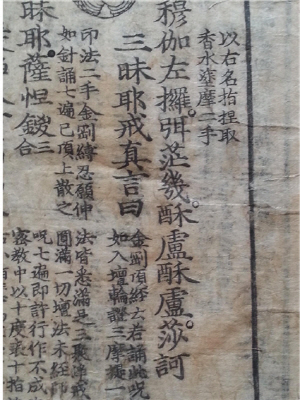 以右名指捏取
香水塗摩二手
穆伽左攞弭茫幾酥盧酥盧莎訶
三昧耶戒真言曰
金剛頂經云若誦此呪
如入壇輪證三摩
法皆悉滿足三聚淨戒
圓滿一切壇法未經師
呪七遍即許行作不成
密教中以十度表十指
印法二手金剛縛忍願伸
如針誦七遍已頂上散之
昧耶薩怛鑁三合